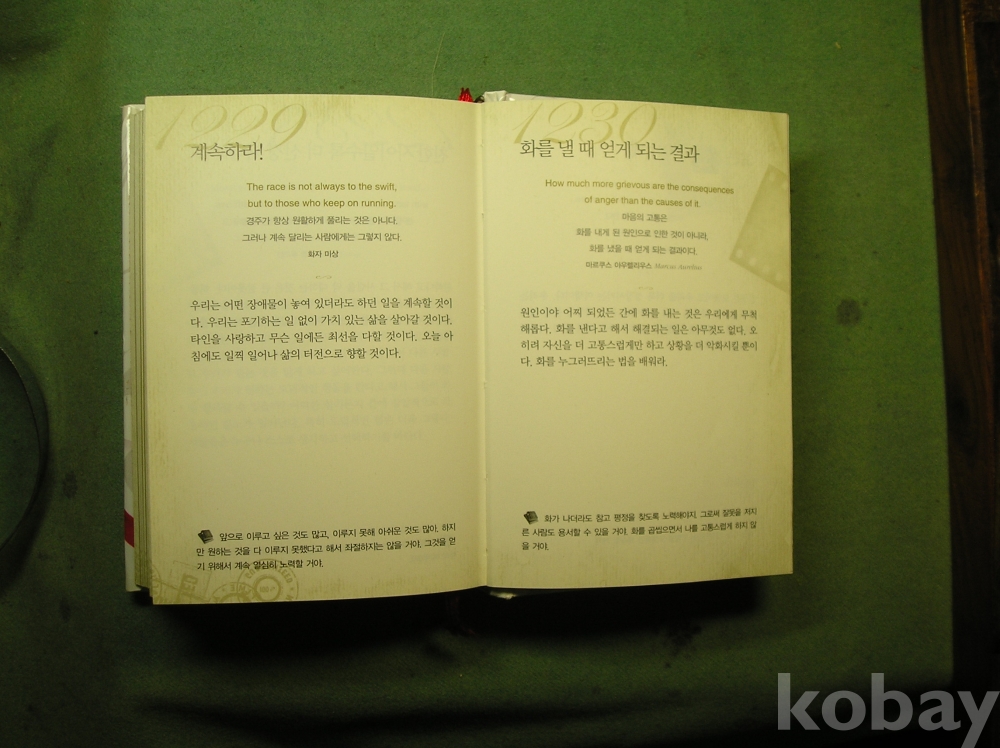 1229
계속하라!
The race is not always to the swift,
but to those who keep on running.
경주가 항상 원활하게 풀리는 것은 아니다.
그러나 계속 달리는 사람에게는 그렇지 않다.
화자 미상
우리는 어떤 장애물이 놓여 있더라도 하던 일을 계속할 것이
다. 우리는 포기하는 일 없이 가치 있는 삶을 살아갈 것이다.
타인을 사랑하고 무슨 일에든 최선을 다할 것이다. 오늘 아
침에도 일찍 일어나 삶의 터전으로 향할 것이다.
앞으로 이루고 싶은 것도 많고, 이루지 못해 아쉬운 것도 많아. 하지
만 원하는 것을 다 이루지 못했다고 해서 좌절하지는 않을 거야. 그것을 얻
기 위해서 계속 열심히 노력할 거야.
1230
화를 낼 때 얻게 되는 결과
How much more grievous are the consequences
of anger than the causes of it.
마음의 고통은
화를 내게 된 원인으로 인한 것이 아니라,
화를 냈을 때 얻게 되는 결과이다.
마르쿠스 아우렐리우스 Marcus Aurelius
원인이야 어찌 되었든 간에 화를 내는 것은 우리에게 무척
해롭다. 화를 낸다고 해서 해결되는 일은 아무것도 없다. 오
히려 자신을 더 고통스럽게만 하고 상황을 더 악화시킬 뿐이
다. 화를 누그러뜨리는 법을 배워라.
화가 나더라도 참고 평정을 찾도록 노력해야지. 그로써 잘못을 저지
른 사람도 용서할 수 있을 거야. 화를 곱씹으면서 나를 고통스럽게 하지 않
을 거야.
kobay